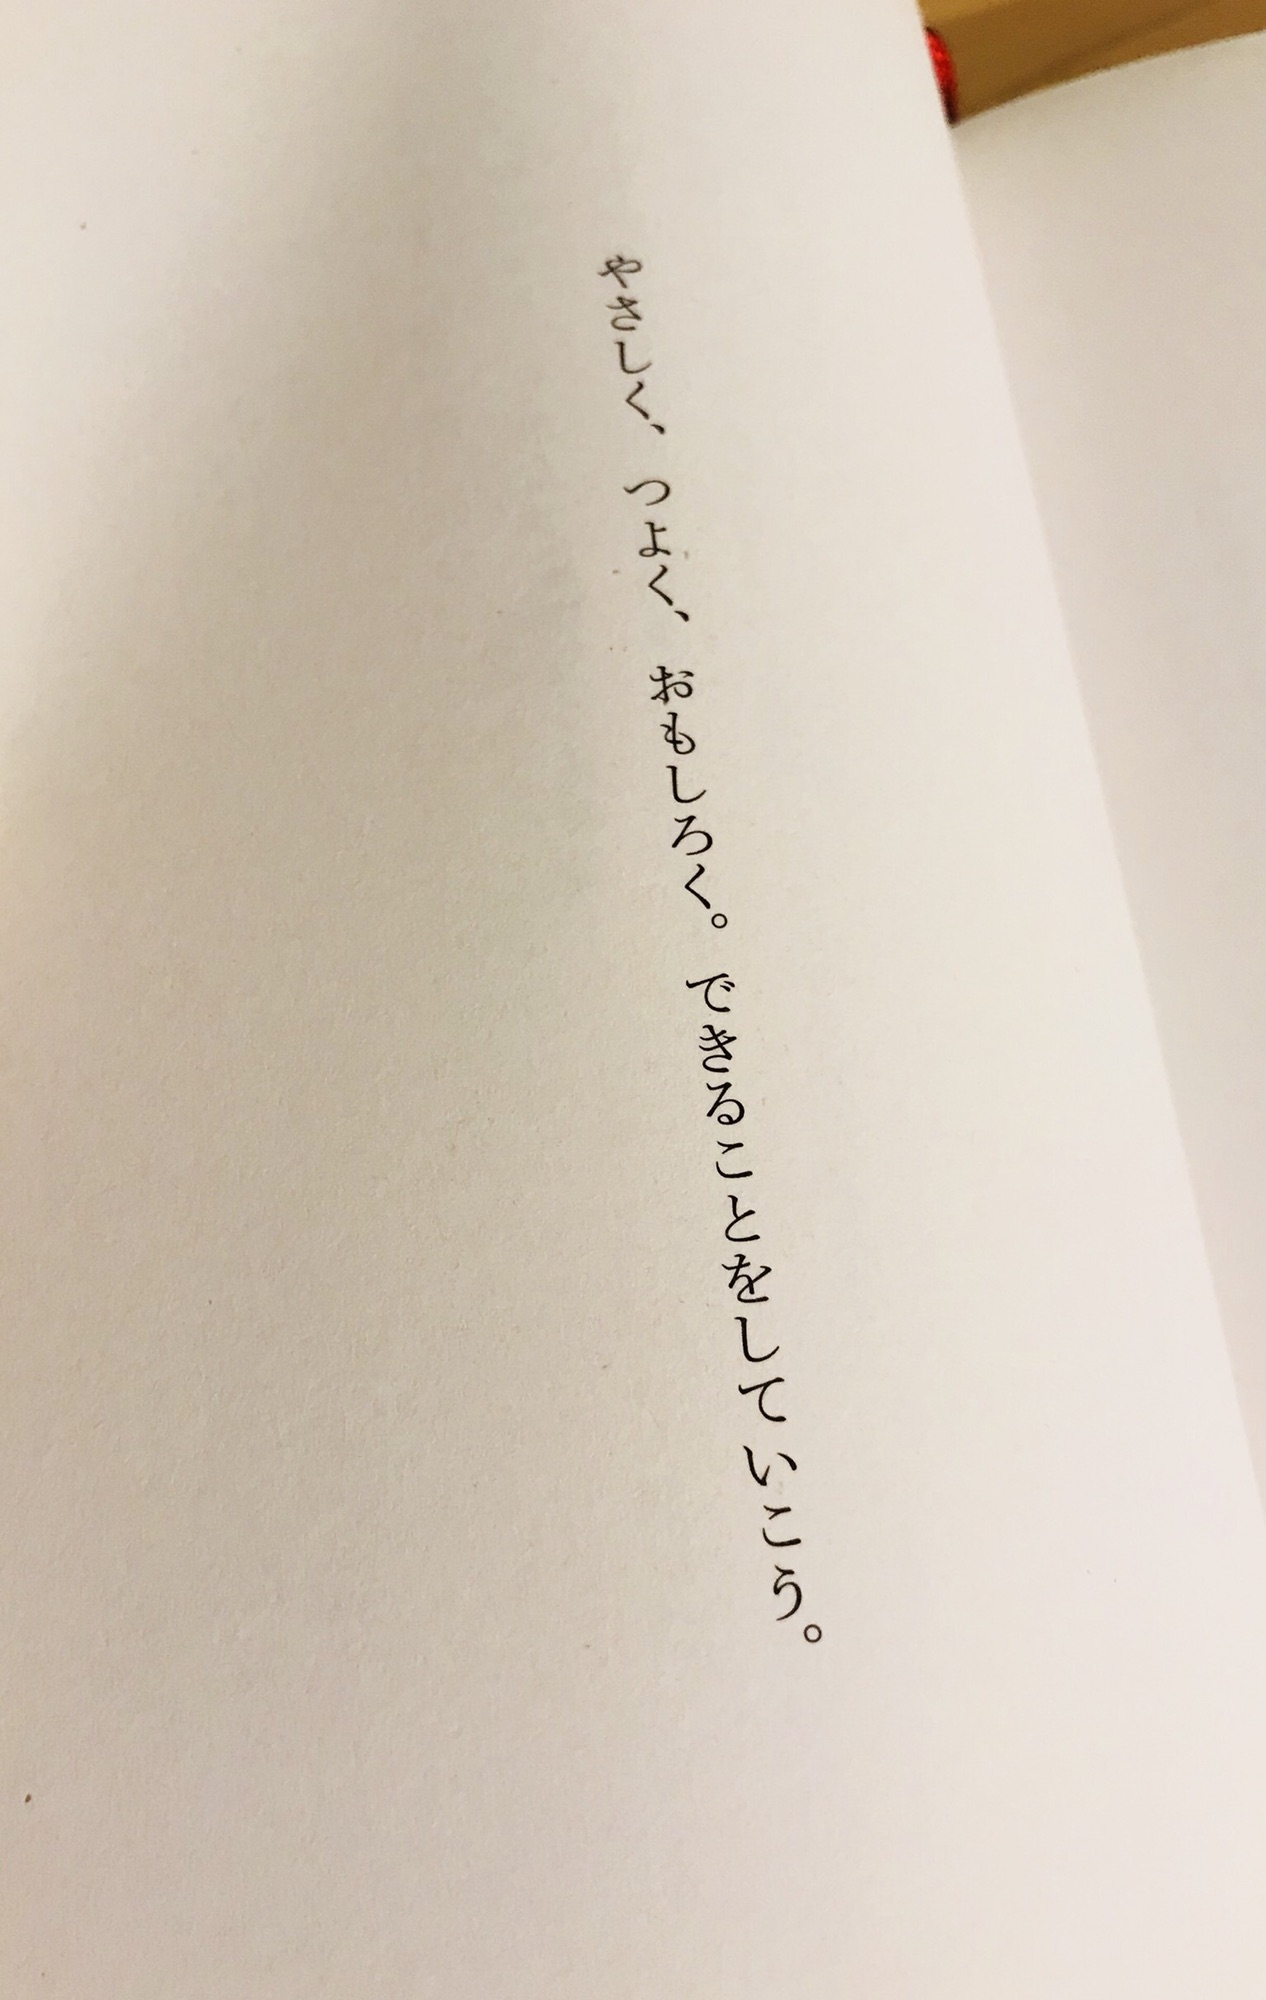 やさしく、つよく、おもしろく。できることをしていこう。